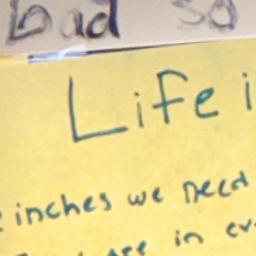 bad so
Life i
inches we need
are in ev